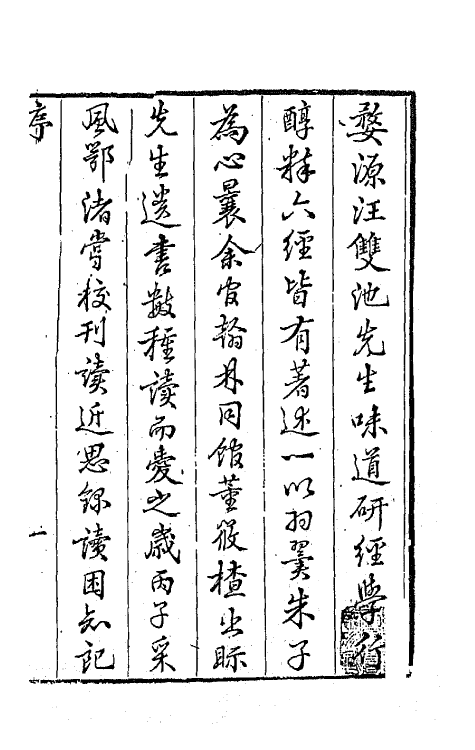 婺源汪雙池先生味道研經學行
醇粹六經皆有著述一以羽翼朱子
為心曩余官翰林同館董筱槎出眎
先生遺書數種讀而愛之歲丙子采
風鄂渚嘗校刊讀近思錄讀困知記
序
一